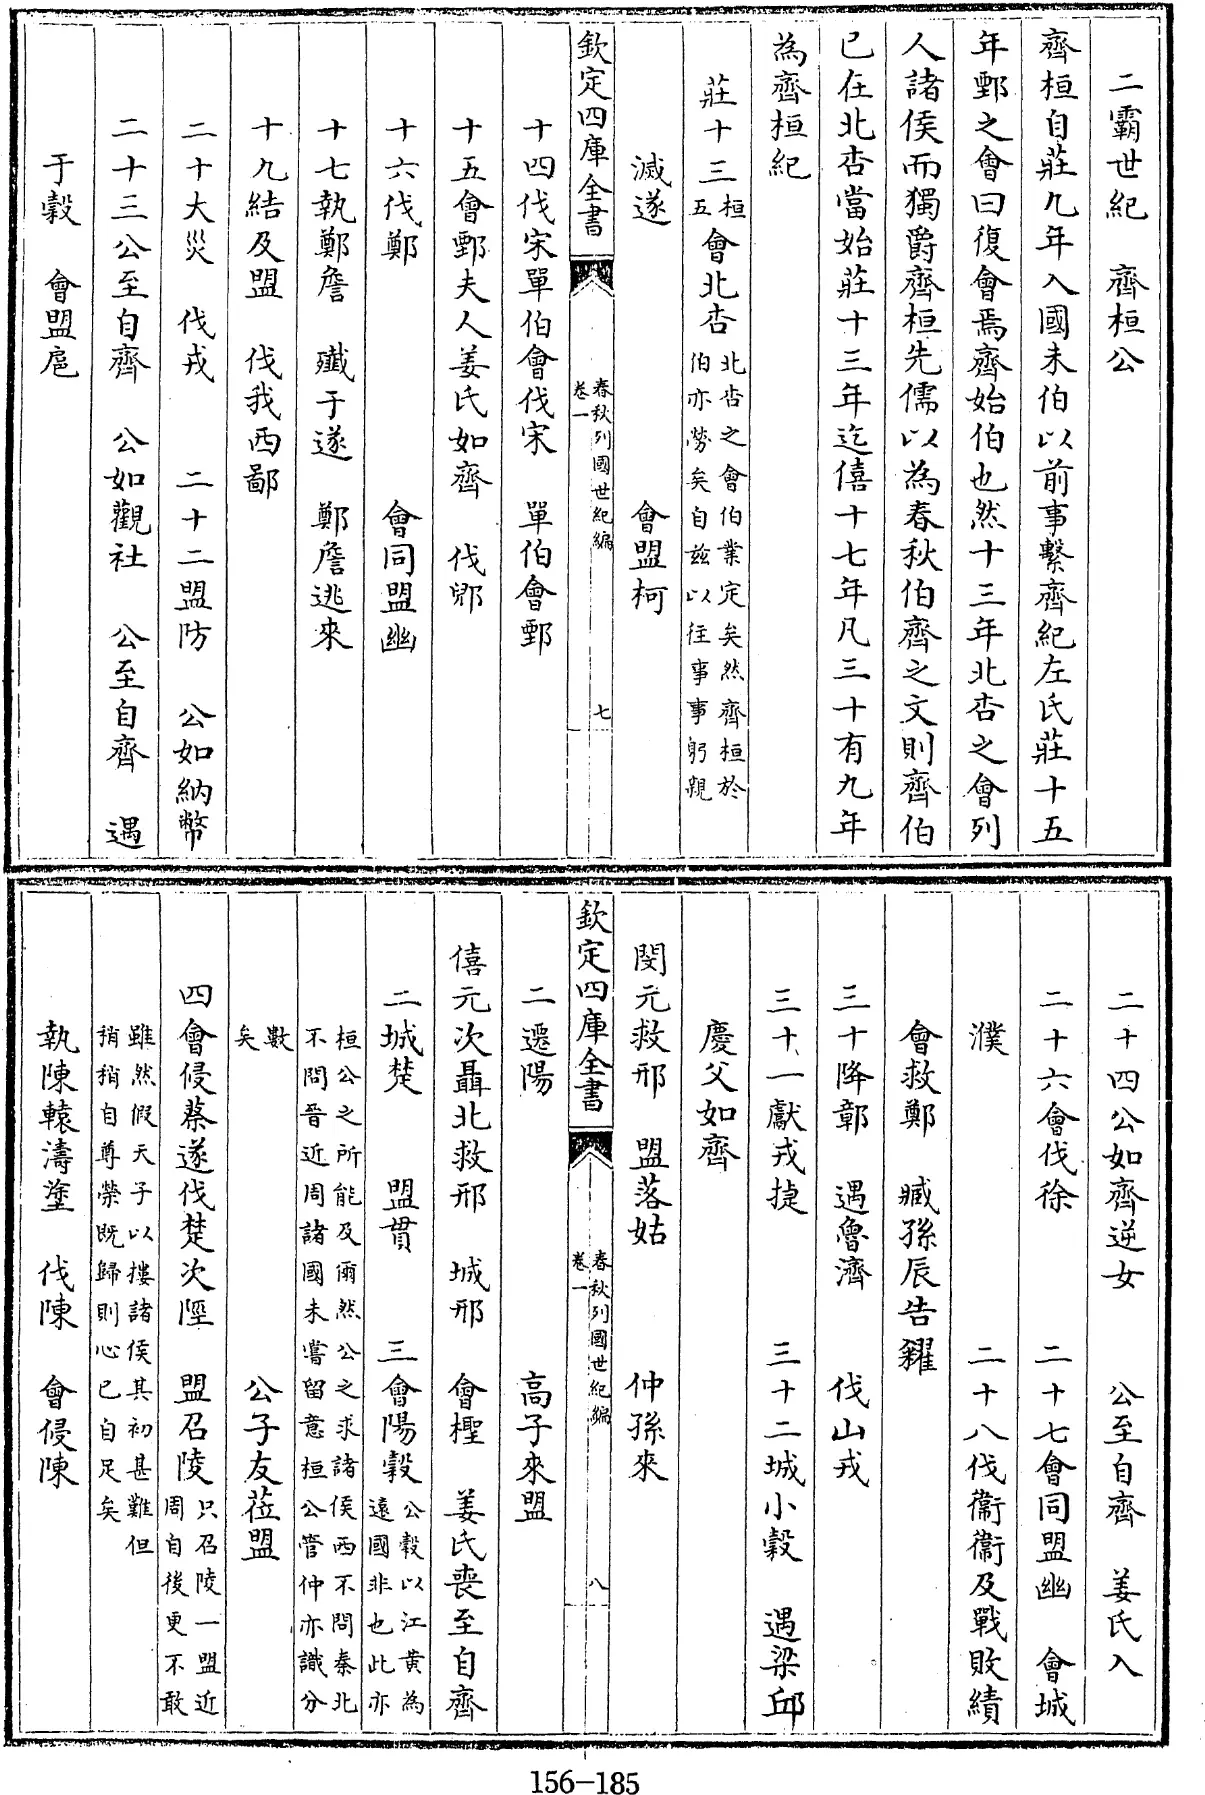 二霸世紀　齊桓公
齊桓自莊九年入國未伯以前事繫齊紀左氏莊十五
年鄄之會曰復會焉齊始伯也然十三年北杏之會列
人諸侯而獨爵齊桓先儒以為春秋伯齊之文則齊伯
已在北杏當始莊十三年迄僖十七年凡三十有九年
為齊桓紀
莊十三桓五會北杏北杏之會伯業定矣然齊桓於伯亦勞矣自茲以往事事躬親
滅遂　會盟柯
欽定四庫全書　春秋列國世紀編卷一　七
十四伐宋單伯會伐宋　單伯會鄄
十五會鄄夫人姜氏如齊　伐郳
十六伐鄭　會同盟幽
十七執鄭詹　殲于遂　鄭詹逃來
十九結及盟　伐我西鄙
二十大災　伐戎　二十二盟防　公如納幣
二十三公至自齊　公如觀社　公至自齊　遇
于穀　會盟扈
二十四公如齊逆女　公至自齊　姜氏入
二十六會伐徐　二十七會同盟幽　會城
濮　二十八伐衞衞及戰敗績
會救鄭　臧孫辰告糴
三十降鄣　遇魯濟　伐山戎
三十一獻戎捷　三十二城小穀　遇梁邱
慶父如齊
閔元救邢　盟落姑　仲孫來
欽定四庫全書　春秋列國世紀編卷一　八
二遷陽　高子來盟
僖元次聶北救邢　城邢　會檉　姜氏喪至自齊
二城楚　盟貫　三會陽穀公穀以江黃為遠國非也此亦
桓公之所能及爾然公之求諸侯西不問秦北不問晉近周諸國未嘗留意桓公管仲亦識分
數矣　公子友莅盟
四會侵蔡遂伐楚次陘　盟召陵只召陵一盟近周自後更不敢
雖然假天子以摟諸侯其初甚難但稍稍自尊榮既歸則心已自足矣
執陳轅濤塗　伐陳　會侵陳
156-185